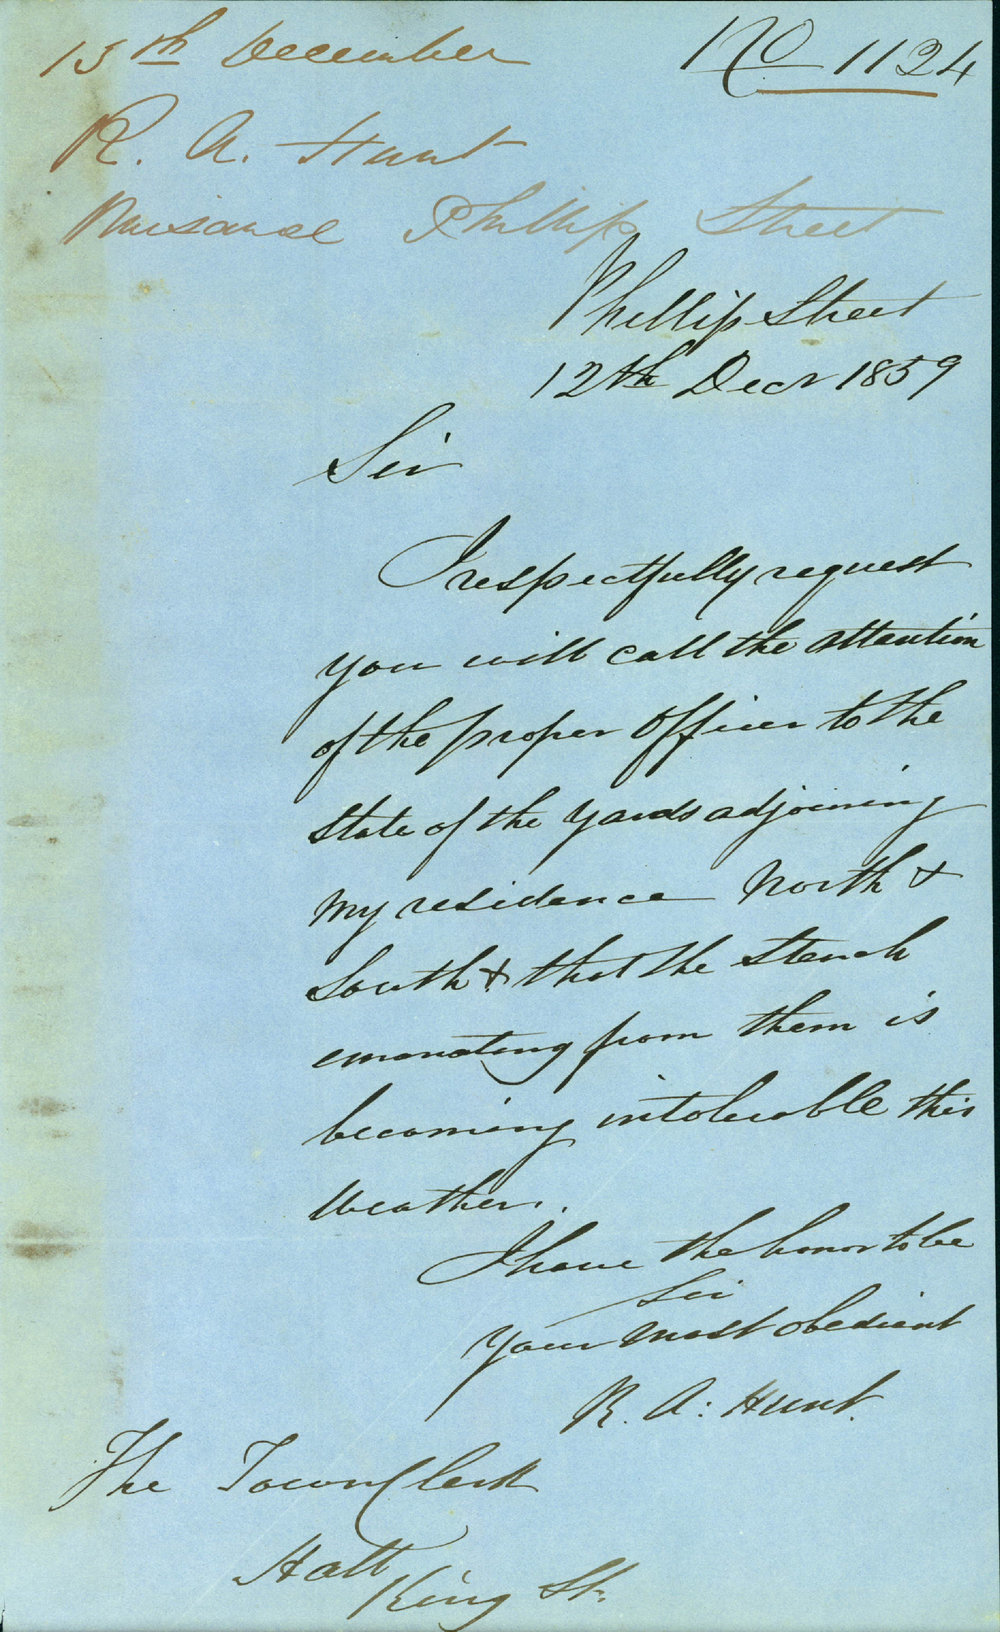 13th December
No 1124
R. A. Hunt
Nuisance Phillip Street
Phillip Street
12th Decr 1859
Sir
I respectfully request
you will call the attention
of the proper Officer to the
State of the yards adjoining
my residence North &
South & that the stench
emanating from them is
becoming intolerable this
Weather.
I have the honor to be
Sir
Your most obedient
R. A: Hunt.
The Town Clerk
Hall
King St.